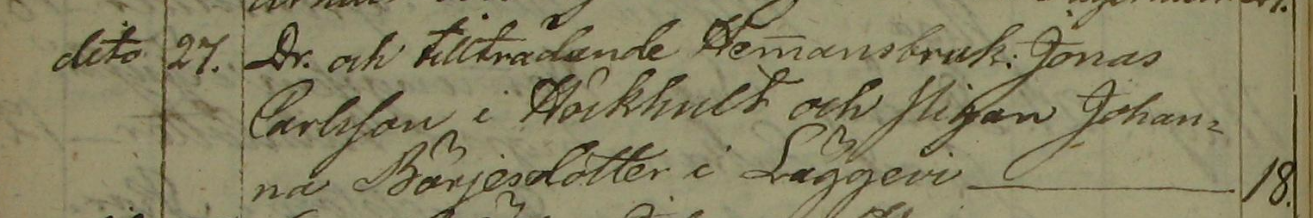 dito 27. Dr. och tillträdande Hem̄ansbruk: Jonas
Carlsson i Höckhult och Pigan Johan=
na Börjesdotter i Läggevi — 18.